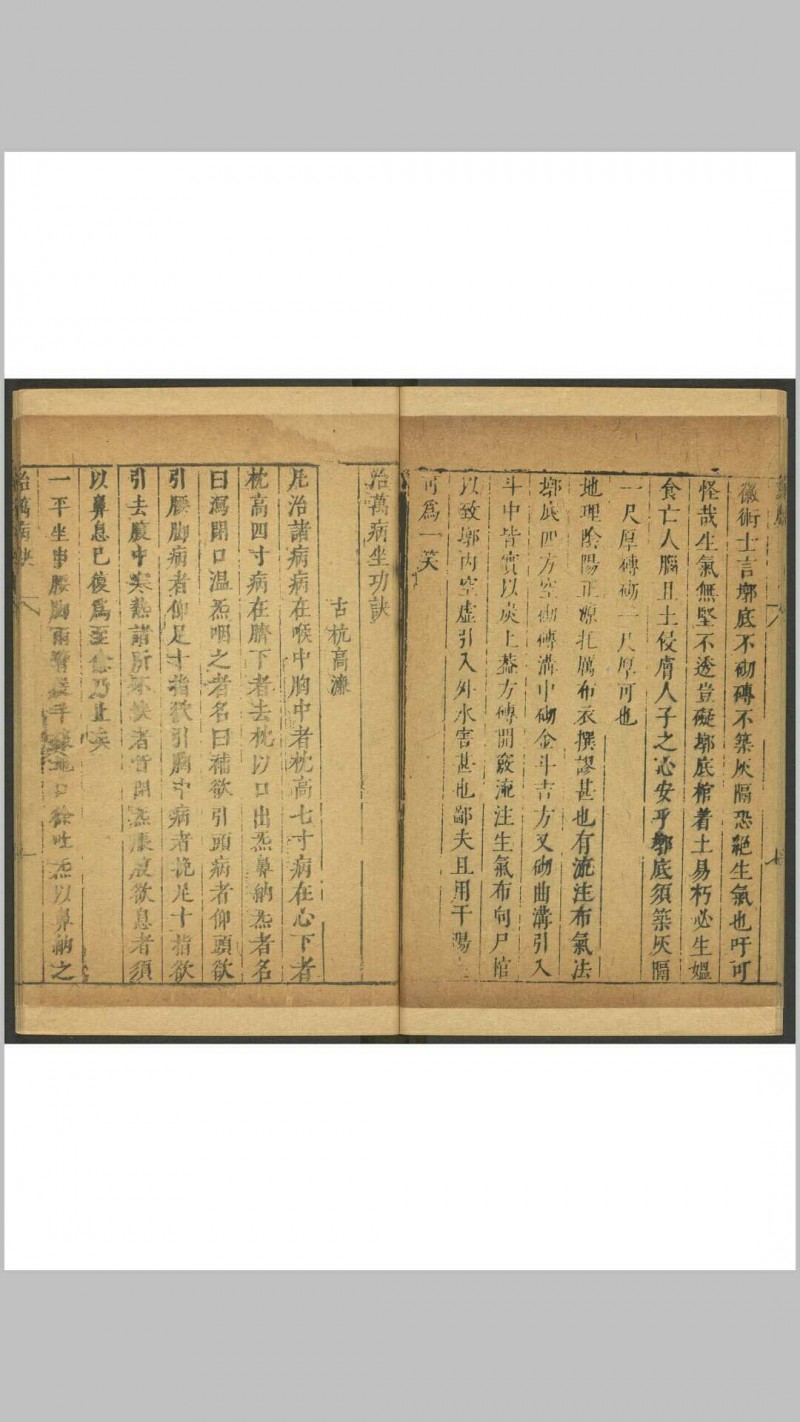 徽術士言墎底不砌磚不築灰隔恐絕生氣也吁可
怪哉生氣無堅不透豈礙墎底棺着土易朽必生媪
食亡人腦且土侵膚人子之心安乎墎底須築灰隔
一尺厚磚砌一尺厚可也
地理陰陽正源托厲布衣撰謬甚也有流注布氣法
墎底四方空砌磚溝中砌金斗吉方又砌曲溝引入
斗中皆實以炭上蓋方磚開竅流注生氣布向尸棺
以致墎內空虛引入外水害甚也鄙夫且用干陽
可為一笑
治萬病坐功訣
古杭高濂
凡治諸病病在喉中胸中者枕高七寸病在心下者
枕高四寸病在臍下者去枕以口出炁鼻納炁者名
曰瀉閉口温炁咽之者名曰補欲引頭病者仰頭欲
引腰脚病者仰足十指欲引胸中病者挽足十指欲
引去腹中寒熱諸所不快者皆閉炁漲腹欲息者須
以鼻息已復為至愈乃止矣
一平坐伸腰脚兩臂口徐吐炁以鼻納之
治萬病訣